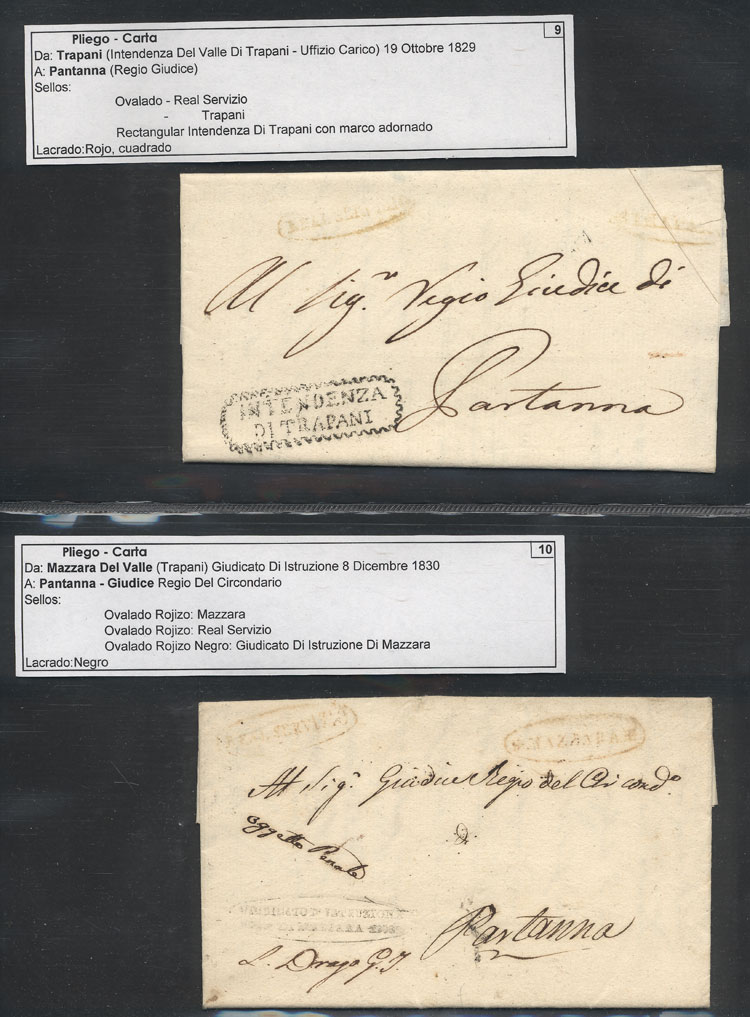 9
Pliego - Carta
Da: Trapani (Intendenza Del Valle Di Trapani - Uffizio Carico) 19 Ottobre 1829
A: Pantanna (Regio Giudice)
Sellos:
Ovalado - Real Servizio
- Trapani
Rectangular Intendenza Di Trapani con marco adornado
Lacrado:Rojo, cuadrado
REAL SERVIZIO
Al Sig.r Regio Giudice di
Partanna
INTENDENZA
DI TRAPANI
10
Pliego - Carta
Da: Mazzara Del Valle (Trapani) Giudicato Di Istruzione 8 Dicembre 1830
A: Pantanna - Giudice Regio Del Circondario
Sellos:
Ovalado Rojizo: Mazzara
Ovalado Rojizo: Real Servizio
Ovalado Rojizo Negro: Giudicato Di Istruzione Di Mazzara
Lacrado:Negro
Al Sig.r Giudice Regio del Circond.o
di
oggetto Penale
Partanna
L. Drago G. I.